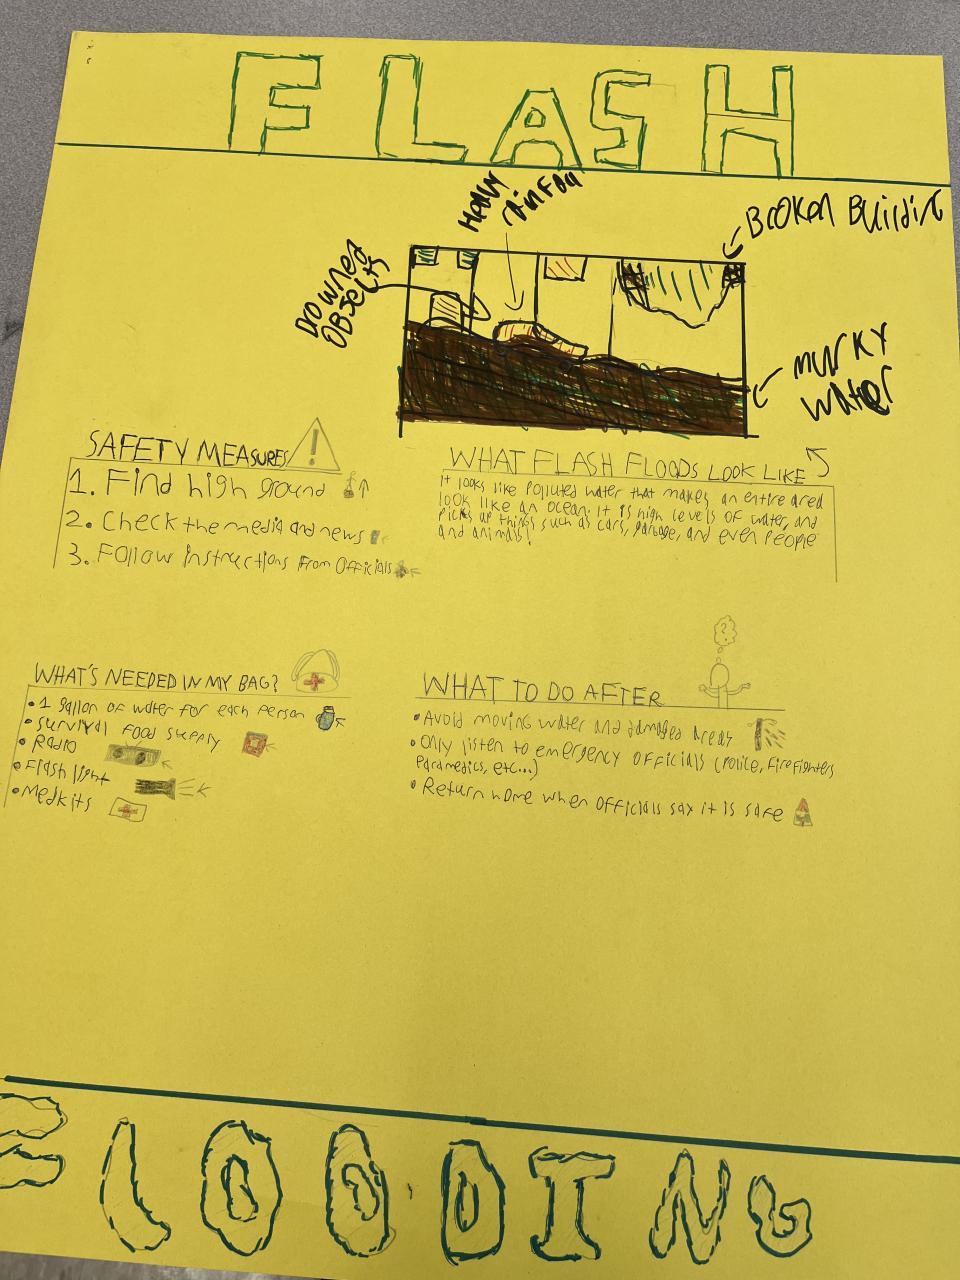 FLASH
HEAVY
rainfall
BROKEN BUILDING
Drowned
OBSECTS
MURKY
water
SAFETY MEASURES !
1. Find high ground
2. Check the media and news
3. Follow instructions from officials
WHAT FLASH FLOODS LOOK LIKE
it looks like polluted water that makes an entire area
look like an ocean. it is high levels of water, and
picks up things such as cars, garbage, and even people
and animals!
WHAT'S NEEDED IN MY BAG?
• 1 gallon of water for each person
• survival food supply
• Radio
• Flash light
• Medkits
?
WHAT TO DO AFTER
• Avoid moving water and damaged areas
• Only listen to emergency officials (police, firefighters
Paramedics, etc...)
• Return home when officials say it is safe
FLOODING